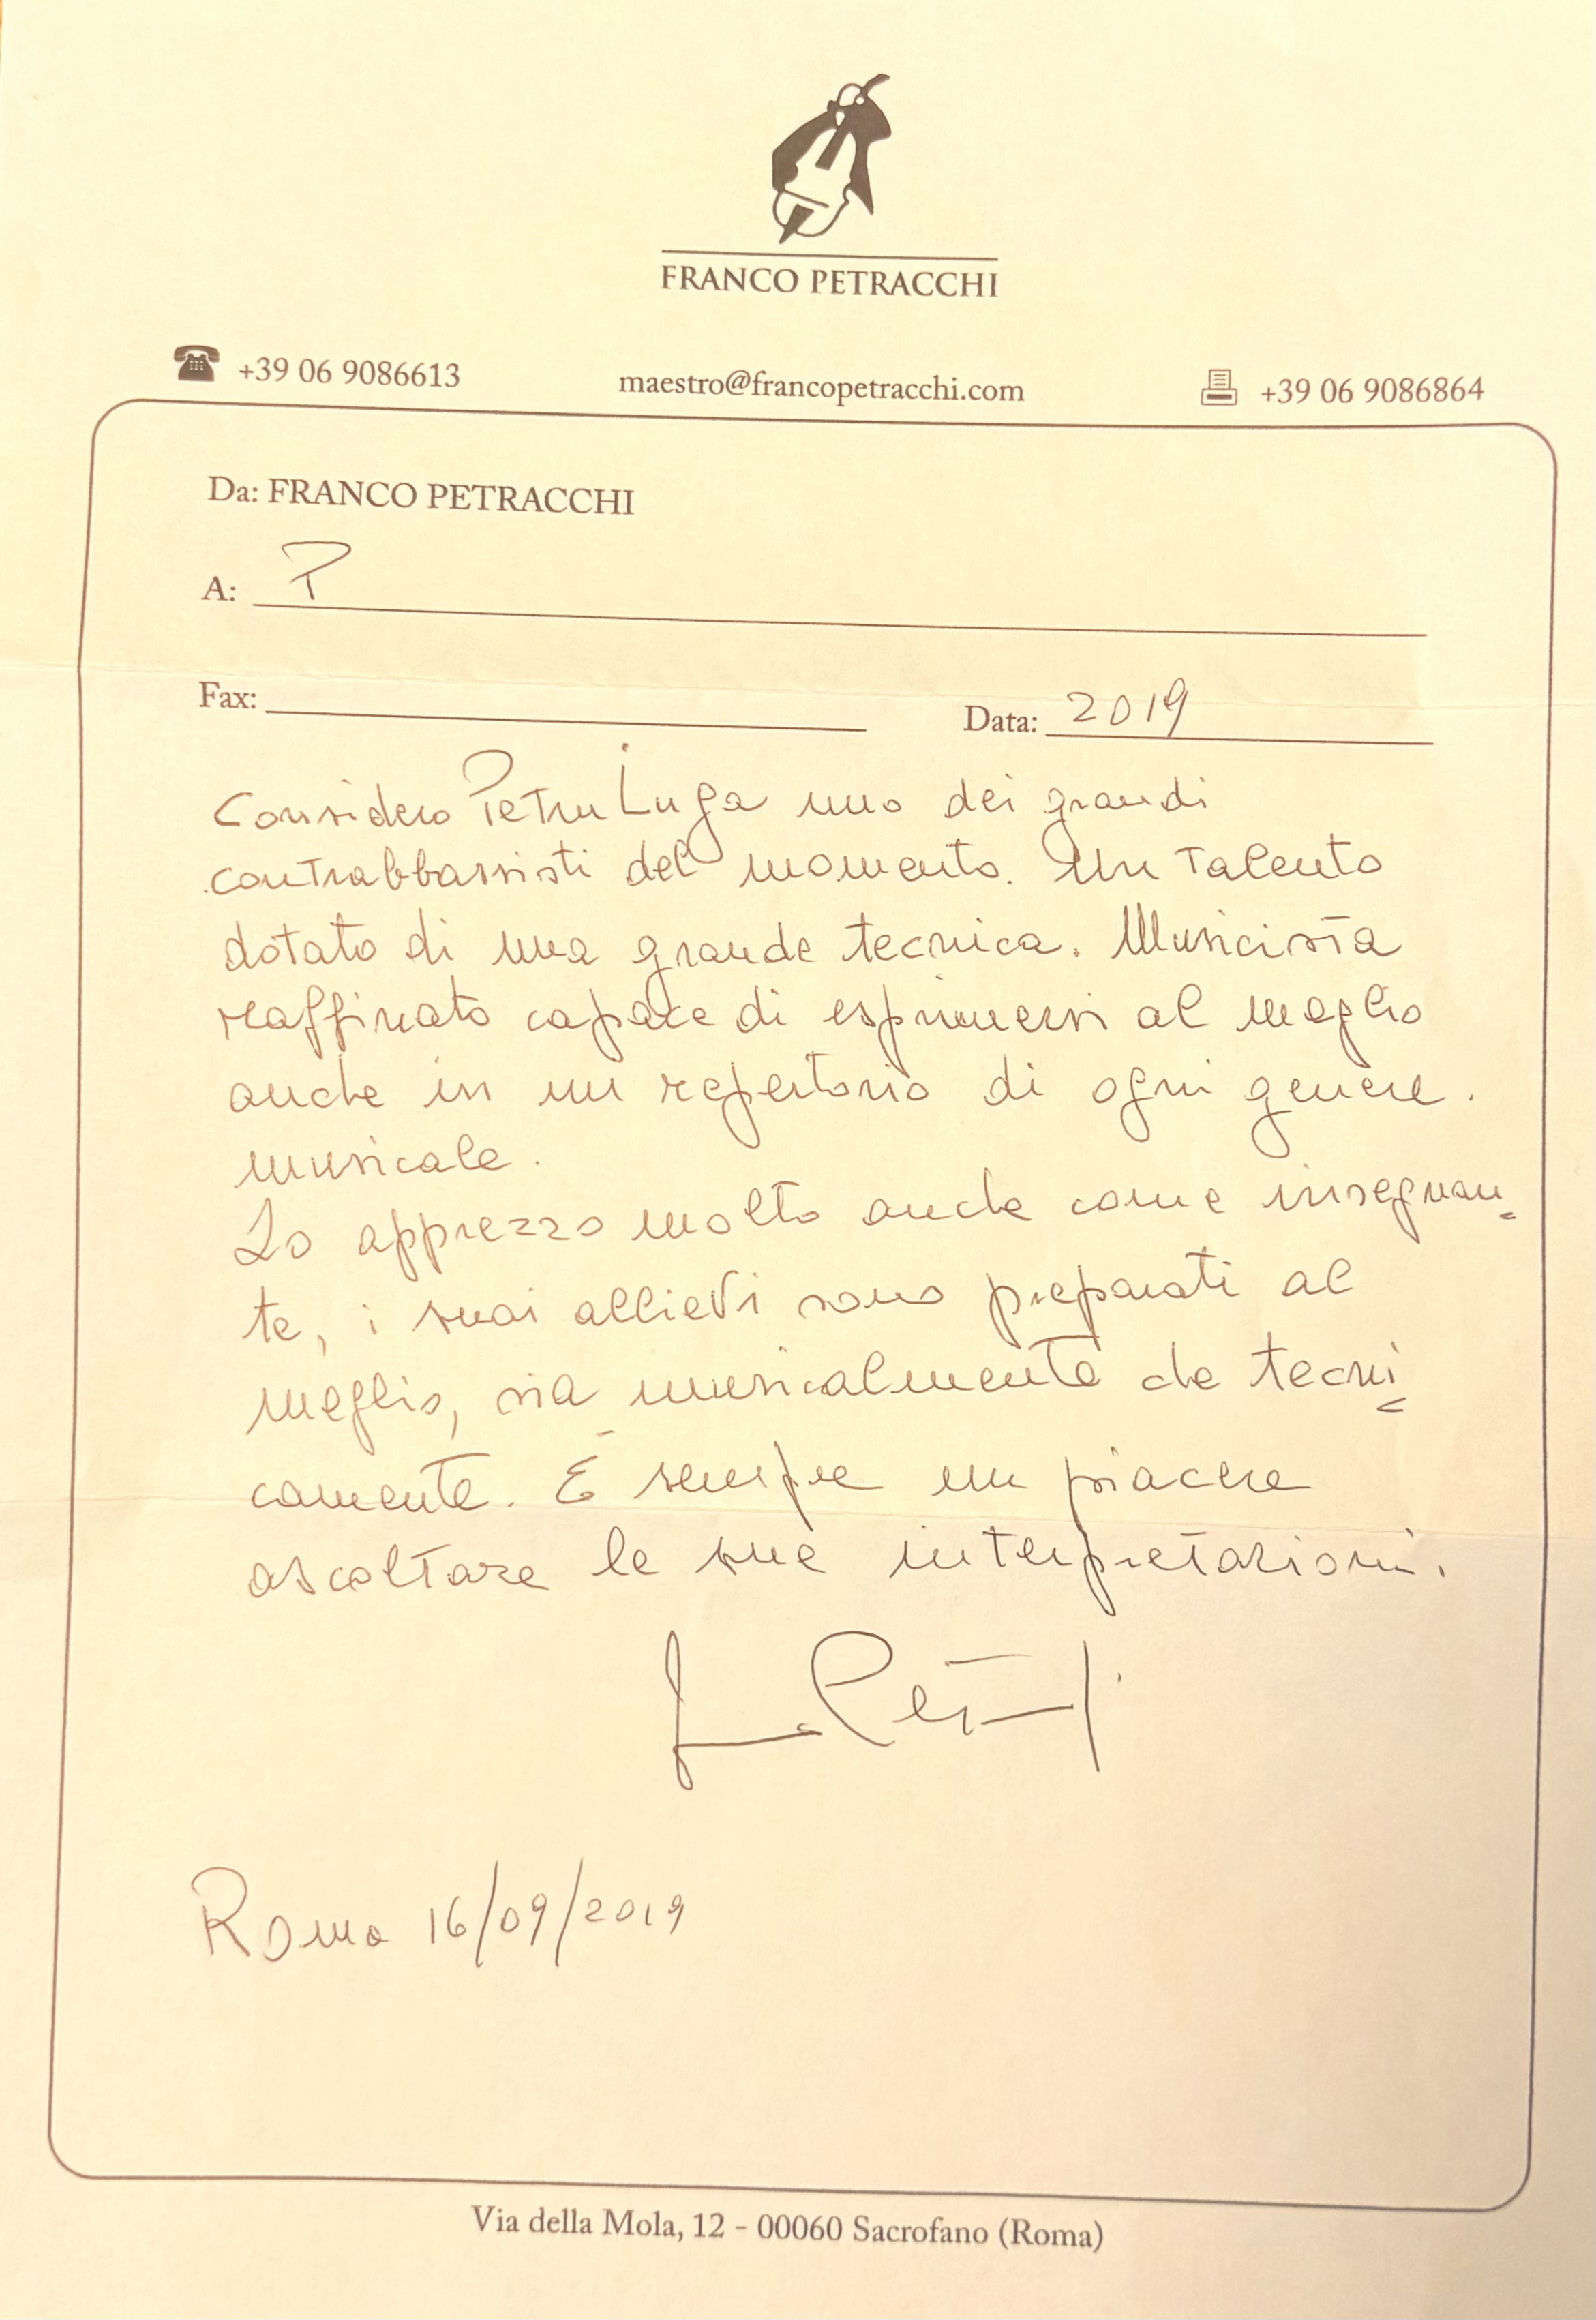 FRANCO PETRACCHI
+39 06 9086613 maestro@francopetracchi.com +39 06 9086864
Da: FRANCO PETRACCHI
A: P
Fax: Data: 2019
Considero Petru Iuga uno dei grandi
contrabbassisti del momento. Un talento
dotato di una grande tecnica. Musicista
raffinato capace di esprimersi al meglio
anche in un repertorio di ogni genere.
musicale.
Lo apprezzo molto anche come insegnan-
te, i suoi allievi sono preparati al
meglio, sia musicalmente che tecni-
camente. È sempre un piacere
ascoltare le sue interpretazioni.
Roma 16/09/2019
Via della Mola, 12 - 00060 Sacrofano (Roma)